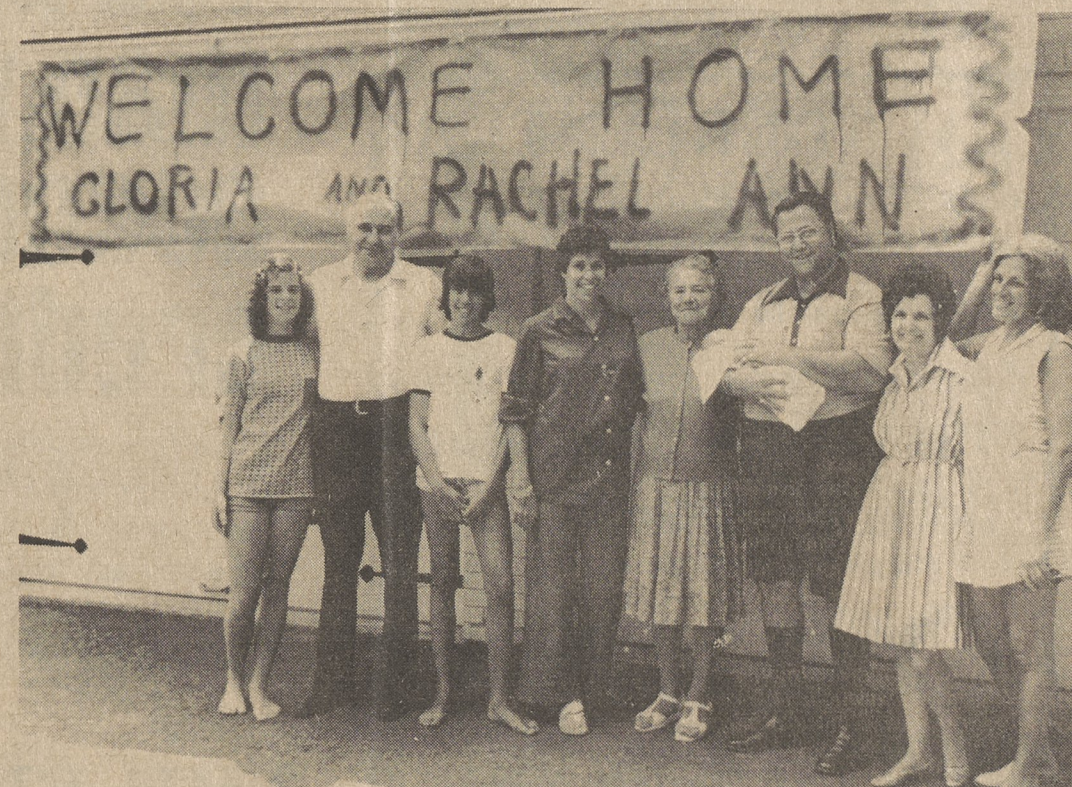 WELCOME HOME
GLORIA AND RACHEL ANN